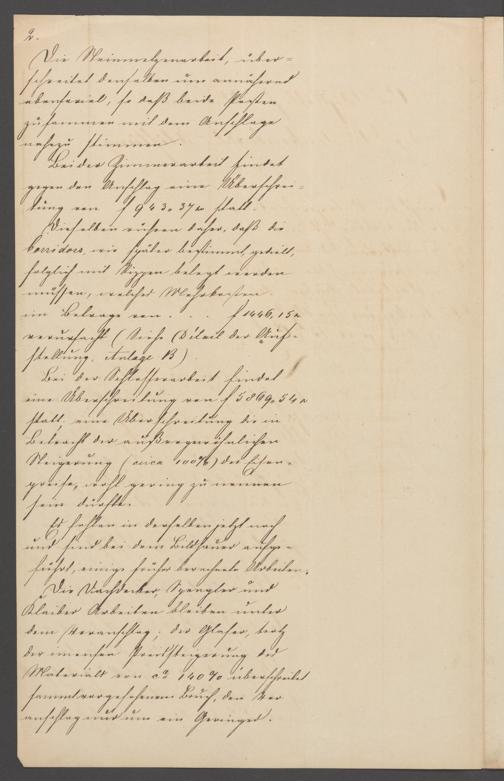 2.
Die Steinmetzenarbeit, über=
schreitet denselben um annähernd
ebensoviel, so daß beide Posten
zusammen mit dem Anschlage
nahezu stimmen.
Bei der Zimmerarbeit findet
gegen den Anschlag eine Überschrei=
tung von f 943.37 statt.
Dieselben rühren daher, daß die
Corridors, wie später bestimmt,
folglich mit Riggen belegt werden
müssen, welches Mehrkosten
im Betrage von . . . f 1446,15
verursacht (Siehe Detail der Auf=
stellung. Anlage B)
Bei der Schlosserarbeit findet
eine Überschreitung von f 5869.54
statt, eine Überschreitung die in
Betracht der außergewöhnlichen
Steigerung (circa 100%) der Eisen=
preise, wohl gering zu nennen
sein dürfte.
Es fehlen in derselben jetzt noch
und sind bei dem Bildhauer aufge=
führt, einige früher berechnete Arbeiten.
Die Dachdecker, Spengler und
Kleiber Arbeiten bleiben unter
dem Voranschlag; der Glaser, trotz
der immensen Preissteigerung des
Materials von ca 140% überschreitet
sammt vorgesehenem Bruch, den Vor
anschlag nur um ein Geringes.